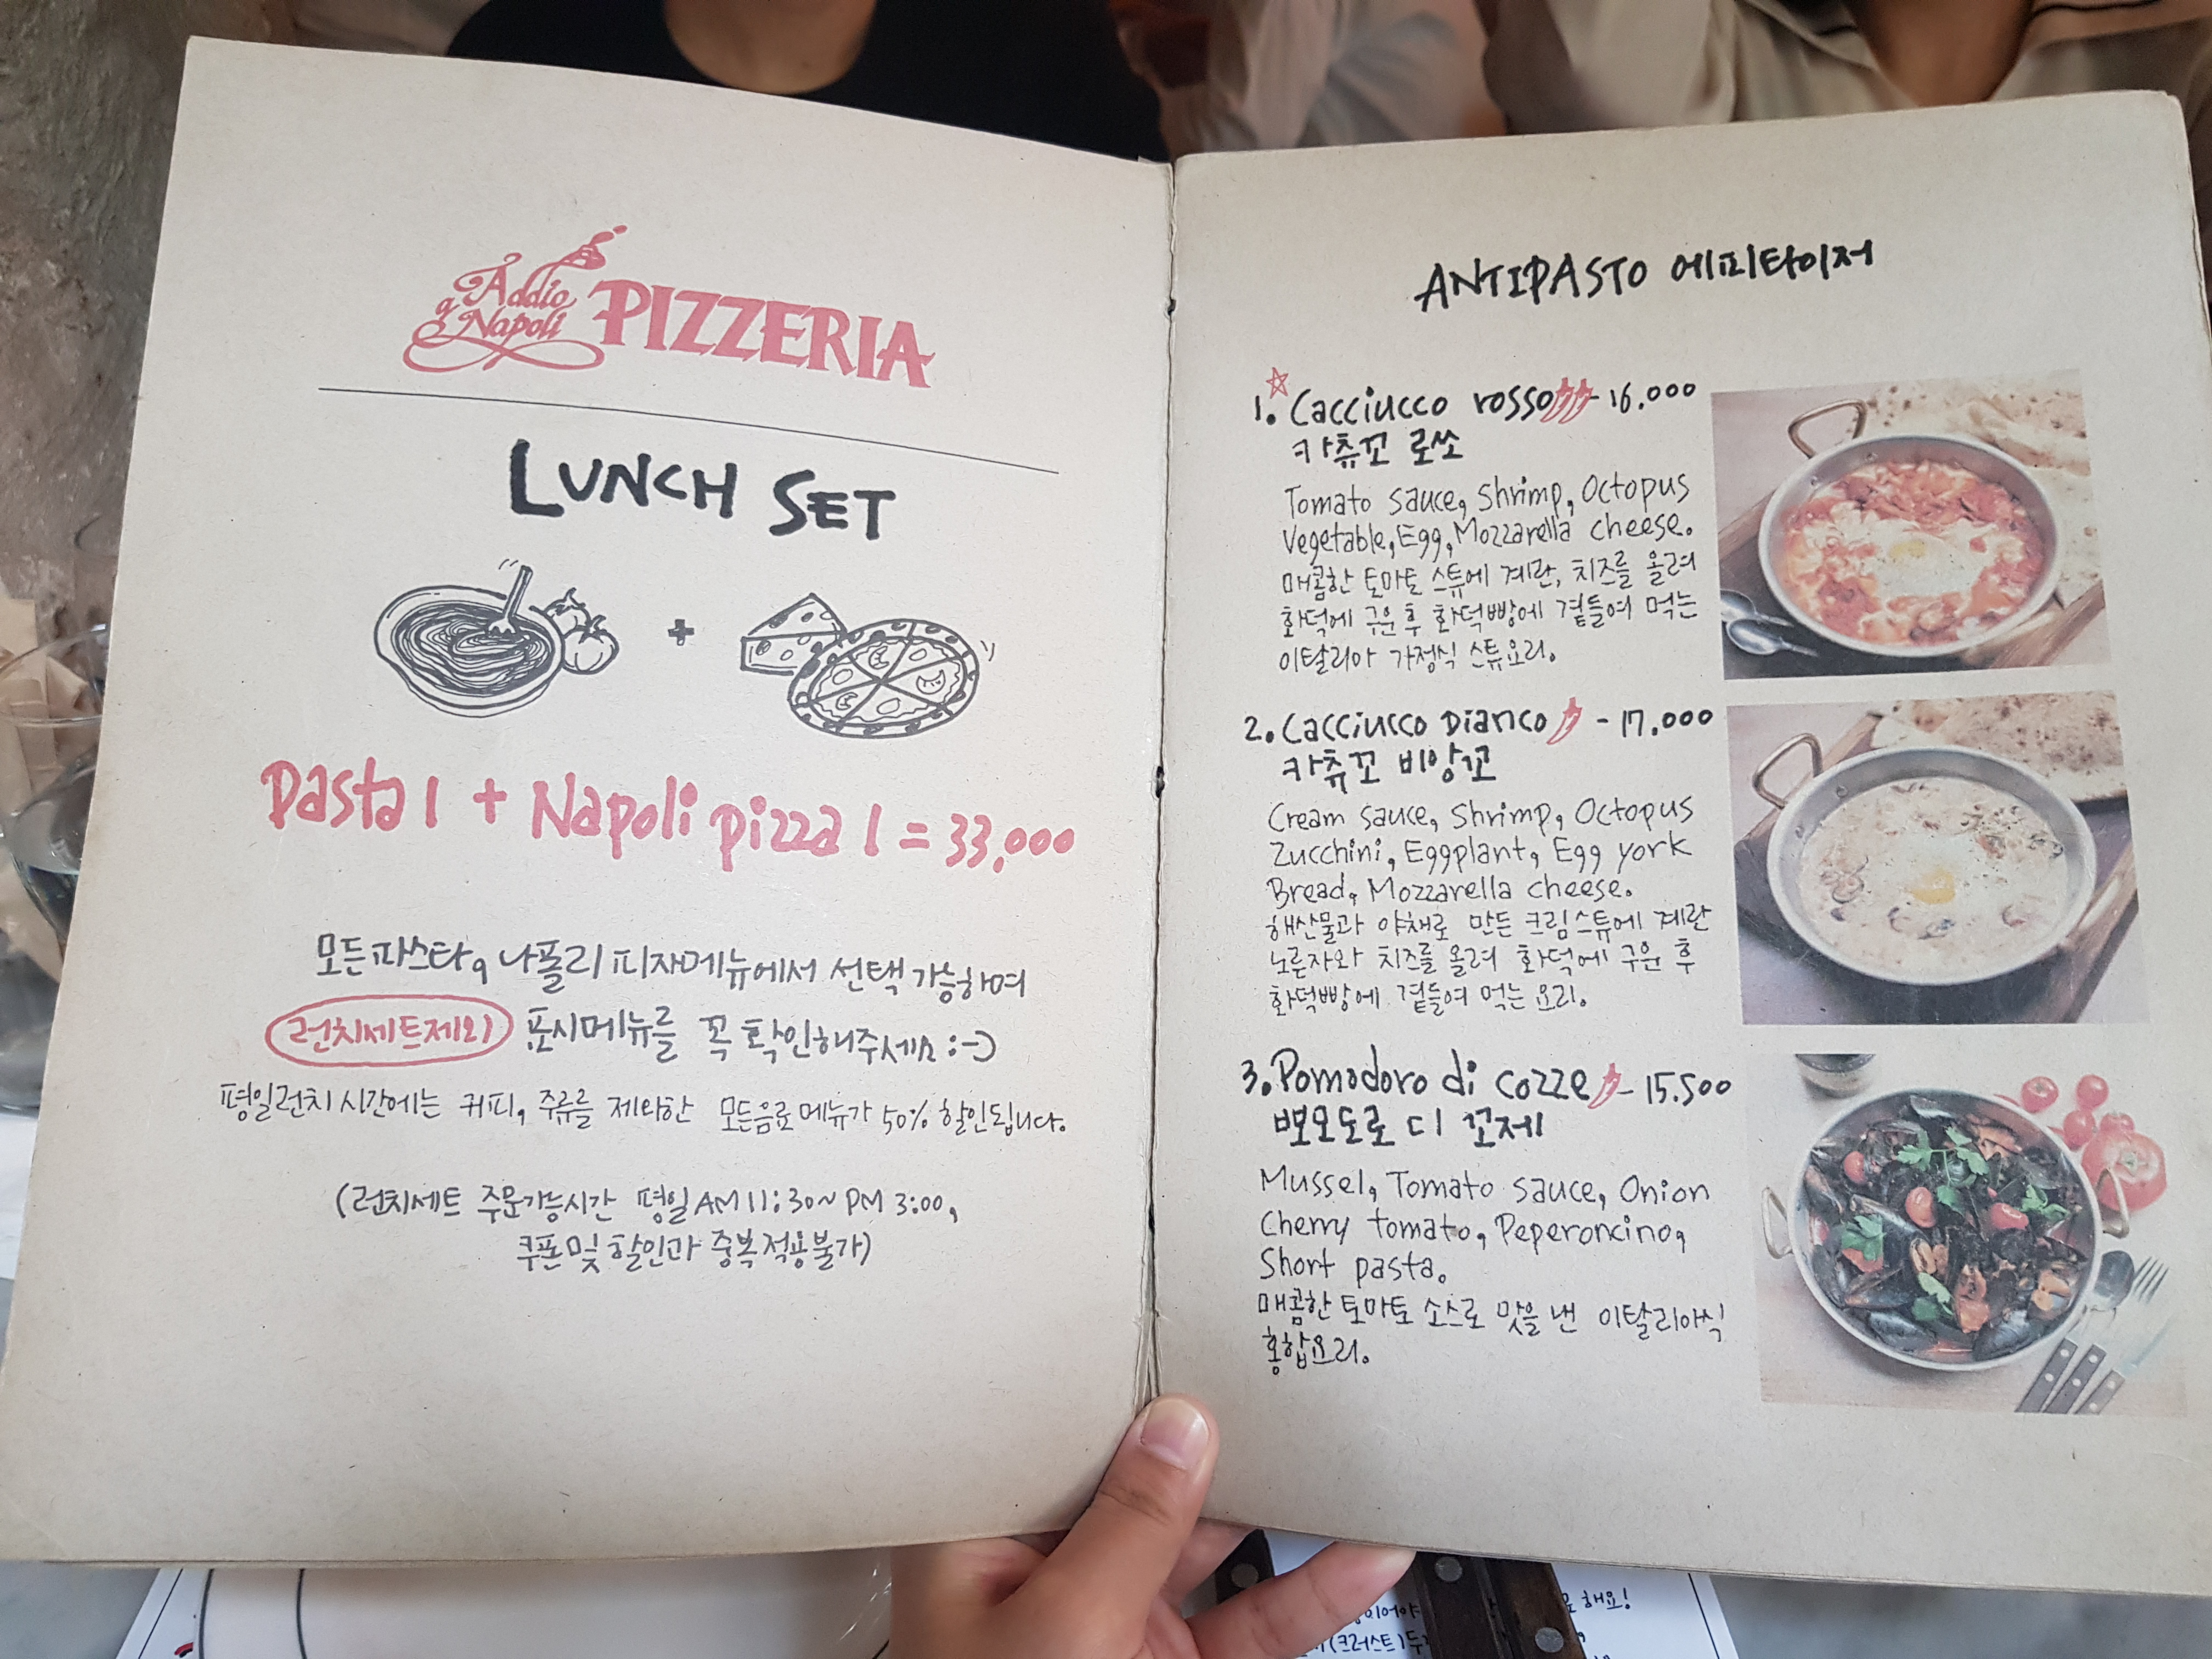 Addio
a Napoli PIZZERIA
LUNCH SET
+
Pasta 1 + Napoli pizza 1 = 33,000
모든파스타, 나폴리 피자메뉴에서 선택 가능하며
런치세트제외 표시메뉴를 꼭 확인해주세요 :-)
평일런치 시간에는 커피, 주류를 제외한 모든음료 메뉴가 50% 할인됩니다.
(런치세트 주문가능시간 평일 AM 11:30~ PM 3:00,
쿠폰 및 할인과 중복적용불가)
ANTIPASTO 에피타이저
1. Cacciucco rosso - 16.000
카츄꼬 로쏘
Tomato sauce, Shrimp, Octopus
Vegetable, Egg, Mozzarella cheese.
매콤한 토마토 스튜에 계란, 치즈를 올려
화덕에 구운 후 화덕빵에 곁들여 먹는
이탈리아 가정식 스튜요리.
2. Cacciucco Bianco - 17.000
카츄꼬 비앙꼬
Cream sauce, Shrimp, Octopus
Zucchini, Eggplant, Egg york
Bread, Mozzarella cheese.
해산물과 야채로 만든 크림스튜에 계란
노른자와 치즈를 올려 화덕에 구운 후
화덕빵에 곁들여 먹는 요리.
3. Pomodoro di cozze - 15.500
뽀모도로 디 꼬제
Mussel, Tomato sauce, Onion
Cherry tomato, Peperoncino,
Short pasta.
매콤한 토마토 소스로 맛을 낸 이탈리아식
홍합요리.
해요!
(크러스트)